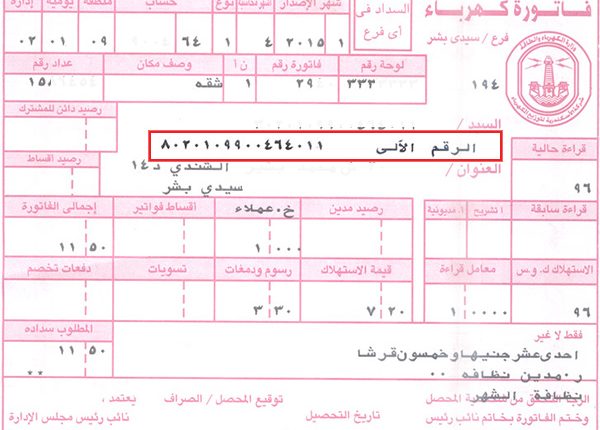 فاتورة كهرباء
السداد فى أى فرع
شهر الإصدار
نوع
حساب
منطقة
يومية
إدارة
فرع / سيدى بشر
١ ٢٠١٥ ٤ ١ ٦٤ ٠٩ ٠١ ٠٢
لوحة رقم
فاتورة رقم
ن أ
وصف مكان
عداد رقم
١٩٤
٣٣٣ ٢٩٤٠ ١ شقه ١٥٠
السيد /
رصيد دائن للمشترك
الرقم الآلى ٨٠٢٠١٠٩٩٠٠٤٦٤٠١١
قراءة حالية
العنوان /
الشندي د١٤
رصيد اقساط
٩٦
سيدي بشر
قراءة سابقة
أ تشريح
أ. مديونية
رصيد مدين
خ.عملاء
اقساط فواتير
إجمالى الفاتورة
١ ٠٠٠
١١ ٥٠
الاستهلاك ك.و.س
معامل قراءة
قيمة الاستهلاك
رسوم ودمغات
تسويات
دفعات تخصم
٩٦
١ ٠٠٠٠
٧ ٢٠
٣ ٣٠
فقط لا غير
المطلوب سداده
احدى عشر جنيها و خمسون قرشا
١١ ٥٠
ر٠مدين نظافه ٠٠
**
نظافة الشهر
المحصل
توقيع المحصل / الصراف
يعتمد ،
وختم الفاتورة بخاتم نائب رئيس
تاريخ التحصيل
نائب رئيس مجلس الإدارة